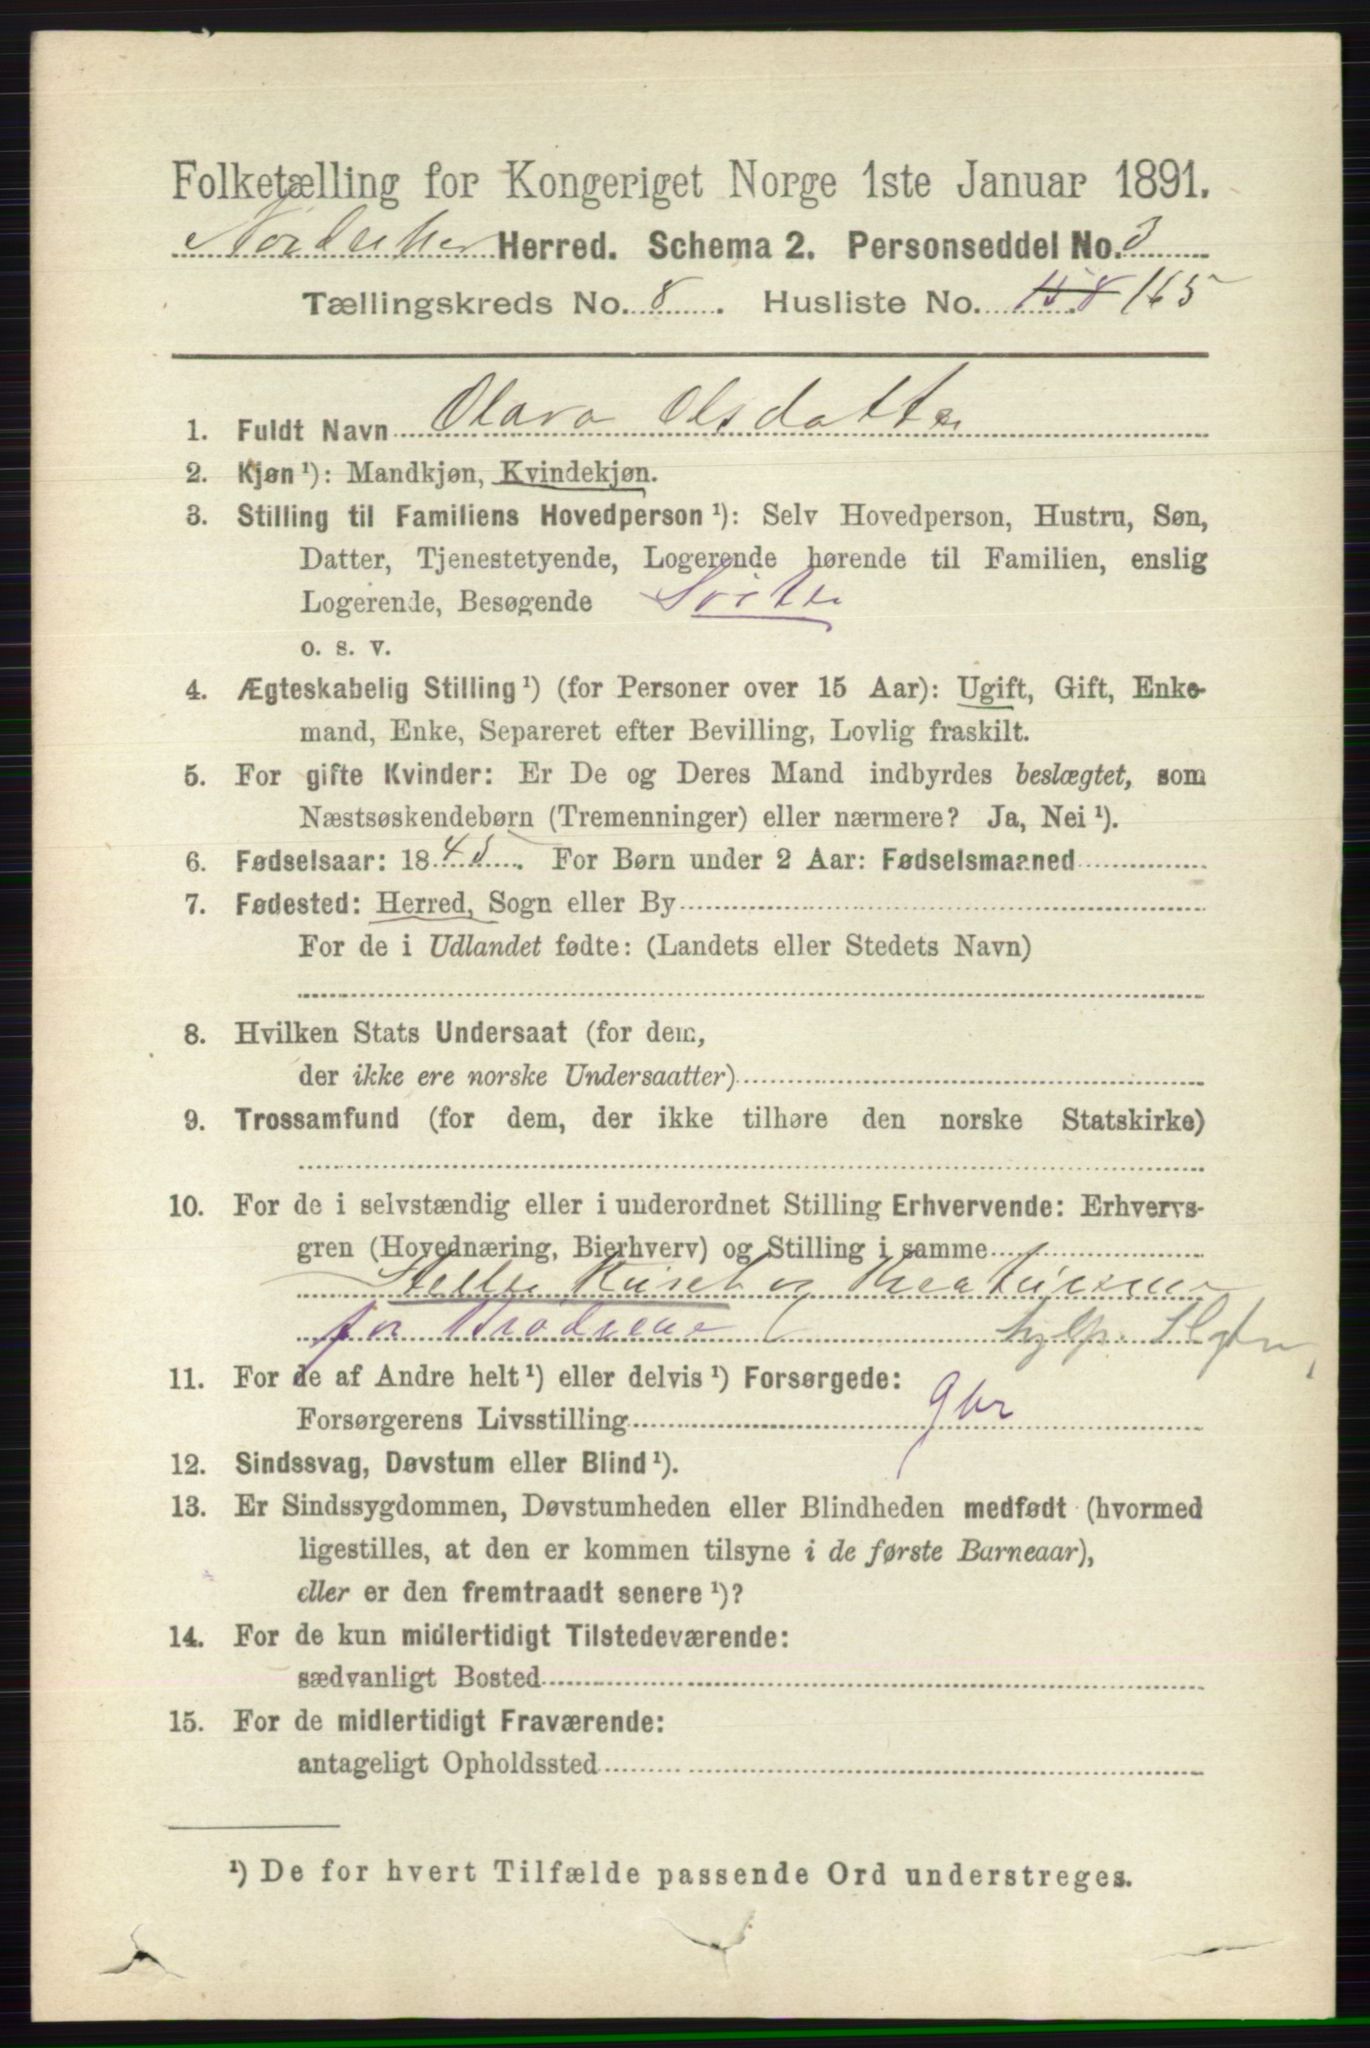 Folketælling for Kongeriget Norge 1ste Januar 1891.
Herred. Schema 2. Personseddel No. 3
Tællingskreds No. 8. Husliste No. 158 165
1. Fuldt Navn Olava Olsdatter
2. Kjøn ¹): Mandkjøn, Kvindekjøn.
3. Stilling til Familiens Hovedperson ¹): Selv Hovedperson, Hustru, Søn,
Datter, Tjenestetyende, Logerende hørende til Familien, enslig
Logerende, Besøgende Søster
o. s. v.
4. Ægteskabelig Stilling ¹) (for Personer over 15 Aar): Ugift, Gift, Enke-
mand, Enke, Separeret efter Bevilling, Lovlig fraskilt.
5. For gifte Kvinder: Er De og Deres Mand indbyrdes beslægtet, som
Næstsøskendebørn (Tremenninger) eller nærmere? Ja, Nei ¹).
6. Fødselsaar: 1845. For Børn under 2 Aar: Fødselsmaaned
7. Fødested: Herred, Sogn eller By
For de i Udlandet fødte: (Landets eller Stedets Navn)
8. Hvilken Stats Undersaat (for dem,
der ikke ere norske Undersaatter)
9. Trossamfund (for dem, der ikke tilhøre den norske Statskirke)
10. For de i selvstændig eller i underordnet Stilling Erhvervende: Erhvervs-
gren (Hovednæring, Bierhverv) og Stilling i samme
Steller Huset og Kreaturene
for Brødrene hjelp.
11. For de af Andre helt ¹) eller delvis ¹) Forsørgede:
Forsørgerens Livsstilling gbr
12. Sindssvag, Døvstum eller Blind ¹).
13. Er Sindssygdommen, Døvstumheden eller Blindheden medfødt (hvormed
ligestilles, at den er kommen tilsyne i de første Barneaar),
eller er den fremtraadt senere ¹)?
14. For de kun midlertidigt Tilstedeværende:
sædvanligt Bosted
15. For de midlertidigt Fraværende:
antageligt Opholdssted
¹) De for hvert Tilfælde passende Ord understreges.